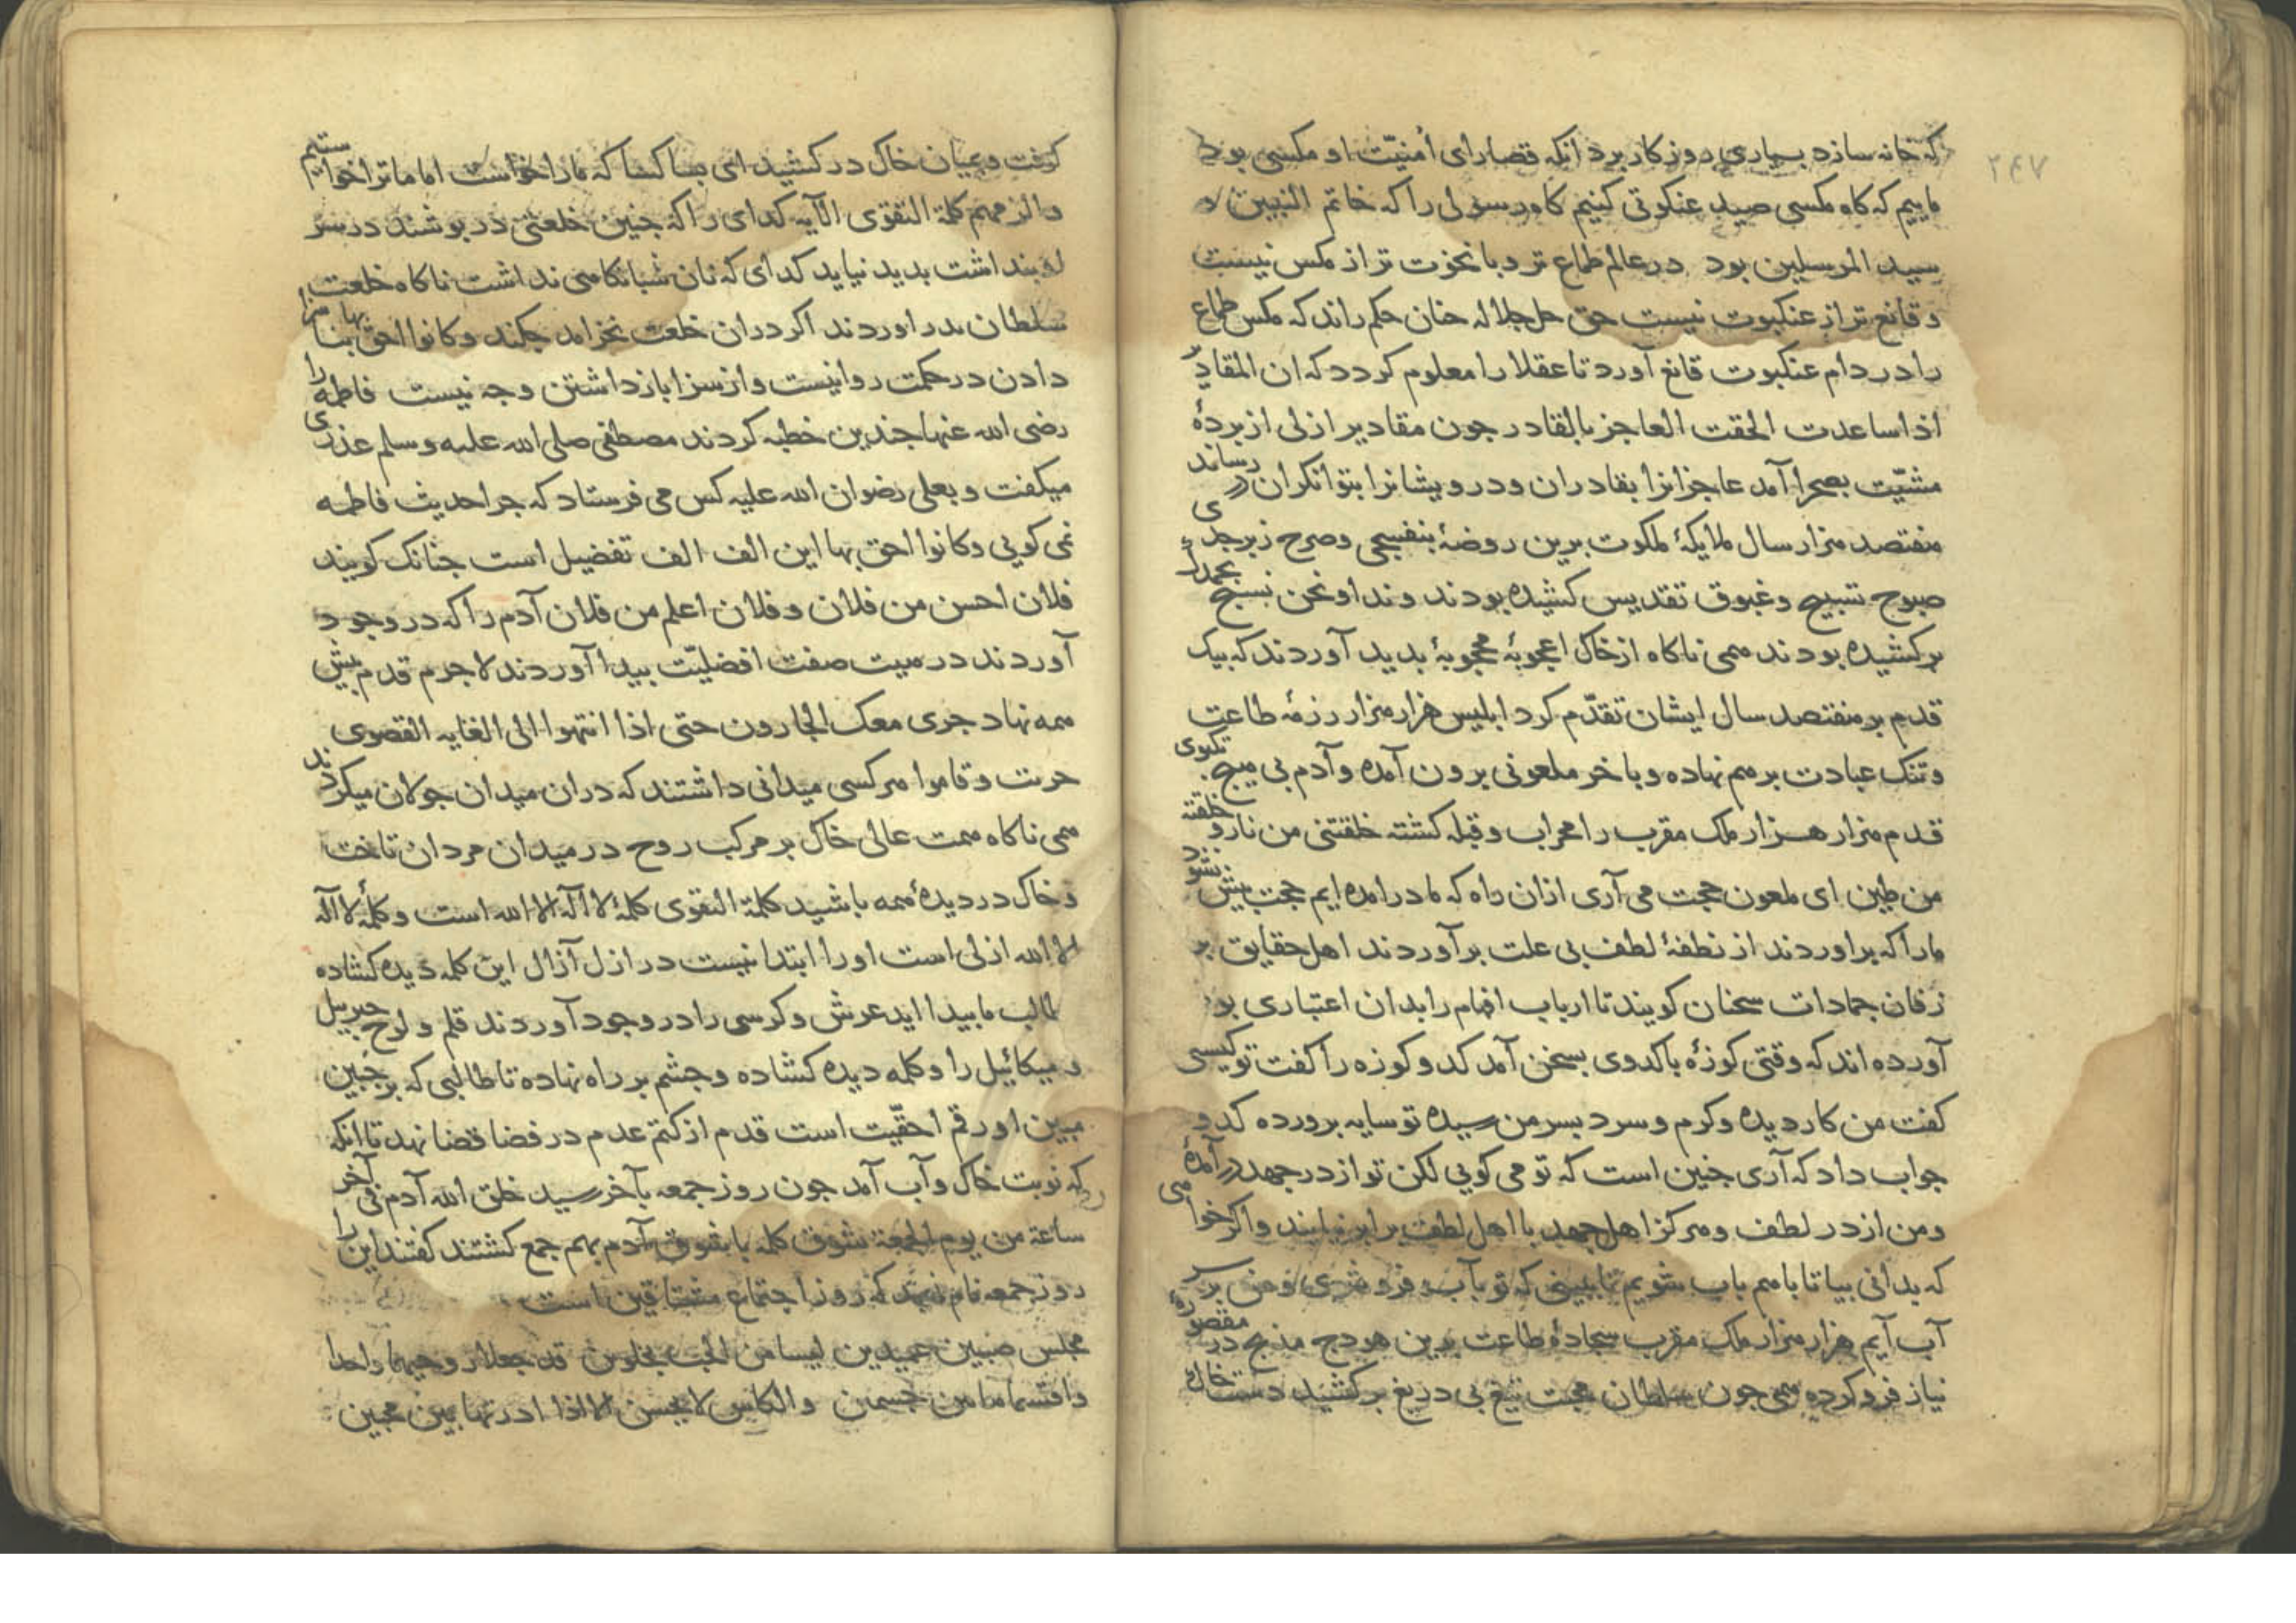 ۲۴۷
که خانه سازد بسیاری روزکار برد انکه قصارای أمنیّت او مکسی بود
ماییم که کاه مکسی صید عنکبوتی کنیم کاه رسولی را که خاتم النبیین و
سید المرسلین بود در عالم طماع تر و با نخوت تر از مکس نیست
و قانع تر از عنکبوت نیست حق جل جلاله جنان حکم راند که مکس طماع
را در دام عنکبوت قانع آورد تا عقلا را معلوم کردد که ان المقادیر
اذا ساعدت الحقت العاجز بالقادر جون مقادیر ازلی از بردۀ
مشیّت بصحرا آمد عاجزانرا بقادران و درویشانرا بتوانکران در رساند
هفتصد هزار سال ملایکۀ ملکوت برین روضۀ بنفسجی و صرح زبرجدی
صبوح تسبیح و غبوق تقدیس کشیده بودند و نداء و نحن نسبح بحمدک
برکشیده بودند همی ناکاه از خاک اعجوبۀ محجوبۀ بدید آوردند که بیک
قدم بر هفتصد سال ایشان تقدّم کرد ابلیس هزار هزار رزمۀ طاعت
و تنک عبادت بر هم نهاده و باخر ملعونی برون آمده و آدم بی هیج تکبوی
قدم هزار هزار ملک مقرب را محراب و قبله کشته خلقتنی من نار و خلقته
من طین ای ملعون حجت می آری ازان راه که ما درامده ایم حجت بیش نشود
مارا که براوردند از نطفۀ لطف بی علت برآوردند اهل حقایق بر
زفان جمادات سخنان کویند تا ارباب افهام را بدان اعتباری بود
آورده اند که وقتی کوزۀ با کدوی بسخن آمد کدو کوزه را کفت تو کیسی
کفت من کار دیده و کرم و سرد بسر من رسیده تو سایه برورده کدو
جواب داد که آری جنین است که تو می کویی لکن تو از در جهد درآمدۀ
و من از در لطف و هرکز اهل جهد با اهل لطف برابر نیایند و اکر خواهی
که بدانی بیا تا باهم باب شویم تا ببینی که تو بآب فرو شوی و من بر سر
آب آیم هزار هزار ملک مقرب سجادۀ طاعت برین هودج مذبح در مقصورۀ
نیاز فرو کرده همی جون سلطان محبت تیغ بی دریغ برکشید دست خاک
کرفت و بمیان خاک درکشید ای بسا کسا که مارا خواست اما ما ترا خواستیم
والزمهم کلمة التقوی الآیه کدای را که جنین خلعتی در بوشند در سر
او بنداشت بدید نیاید کدای که نان شبانکاهی نداشت ناکاه خلعت
سلطان بدر اوردند اکر دران خلعت نخرامد جکند وکانوا احق بها بناسزا
دادن در حکمت روا نیست و از سزا باز داشتن وجه نیست فاطمه را
رضی الله عنها جندین خطبه کردند مصطفی صلی الله علیه وسلم عذری
میکفت و بعلی رضوان الله علیه کس می فرستاد که جرا حدیث فاطمه
نمی کویی وکانوا احق بها این الف الف تفضیل است جنانک کویند
فلان احسن من فلان و فلان اعلم من فلان آدم را که در وجود
آوردند در هیت صفت افضلیّت بیدا آوردند لاجرم قدم بیش
همه نهاد جری معک الجارون حتی اذا انتهوا الی الغایه القصوی
جریت وقاموا هرکسی میدانی داشتند که دران میدان جولان میکردند
همی ناکاه همت عالی خاک بر مرکب روح در میدان مردان تاخت
و خاک در دیدۀ همه باشید کلمة التقوی کلمۀ لا اله الا الله است و کلمۀ لا اله
الا الله ازلی است اورا ابتدا نیست در ازل آزال این کلمه دیده کشاده
طالب ما بیدا اید عرش و کرسی را در وجود آوردند قلم و لوح جبریل
و میکائیل را و کلمه دیده کشاده و جشم بر راه نهاده تا طالبی که بر جبین
مبین او رقم احقّیت است قدم از کتم عدم در فضا قضا نهد تا انکه
که نوبت خاک و آب آمد جون روز جمعه بآخر رسید خلق الله آدم فی آخر
ساعة من یوم الجمعة شوق کلمه با شوق آدم بهم جمع کشتند کفتند این را
روز جمعه نام نهید که روز اجتماع مشتاقین است
مجلس صبین عمیدین لیسا من الحب بخلوین قد جعلا روحیهما واحدا
واقتسما ما من جسمین والکاس لا یحسن الا اذا ادرتها بین محبین